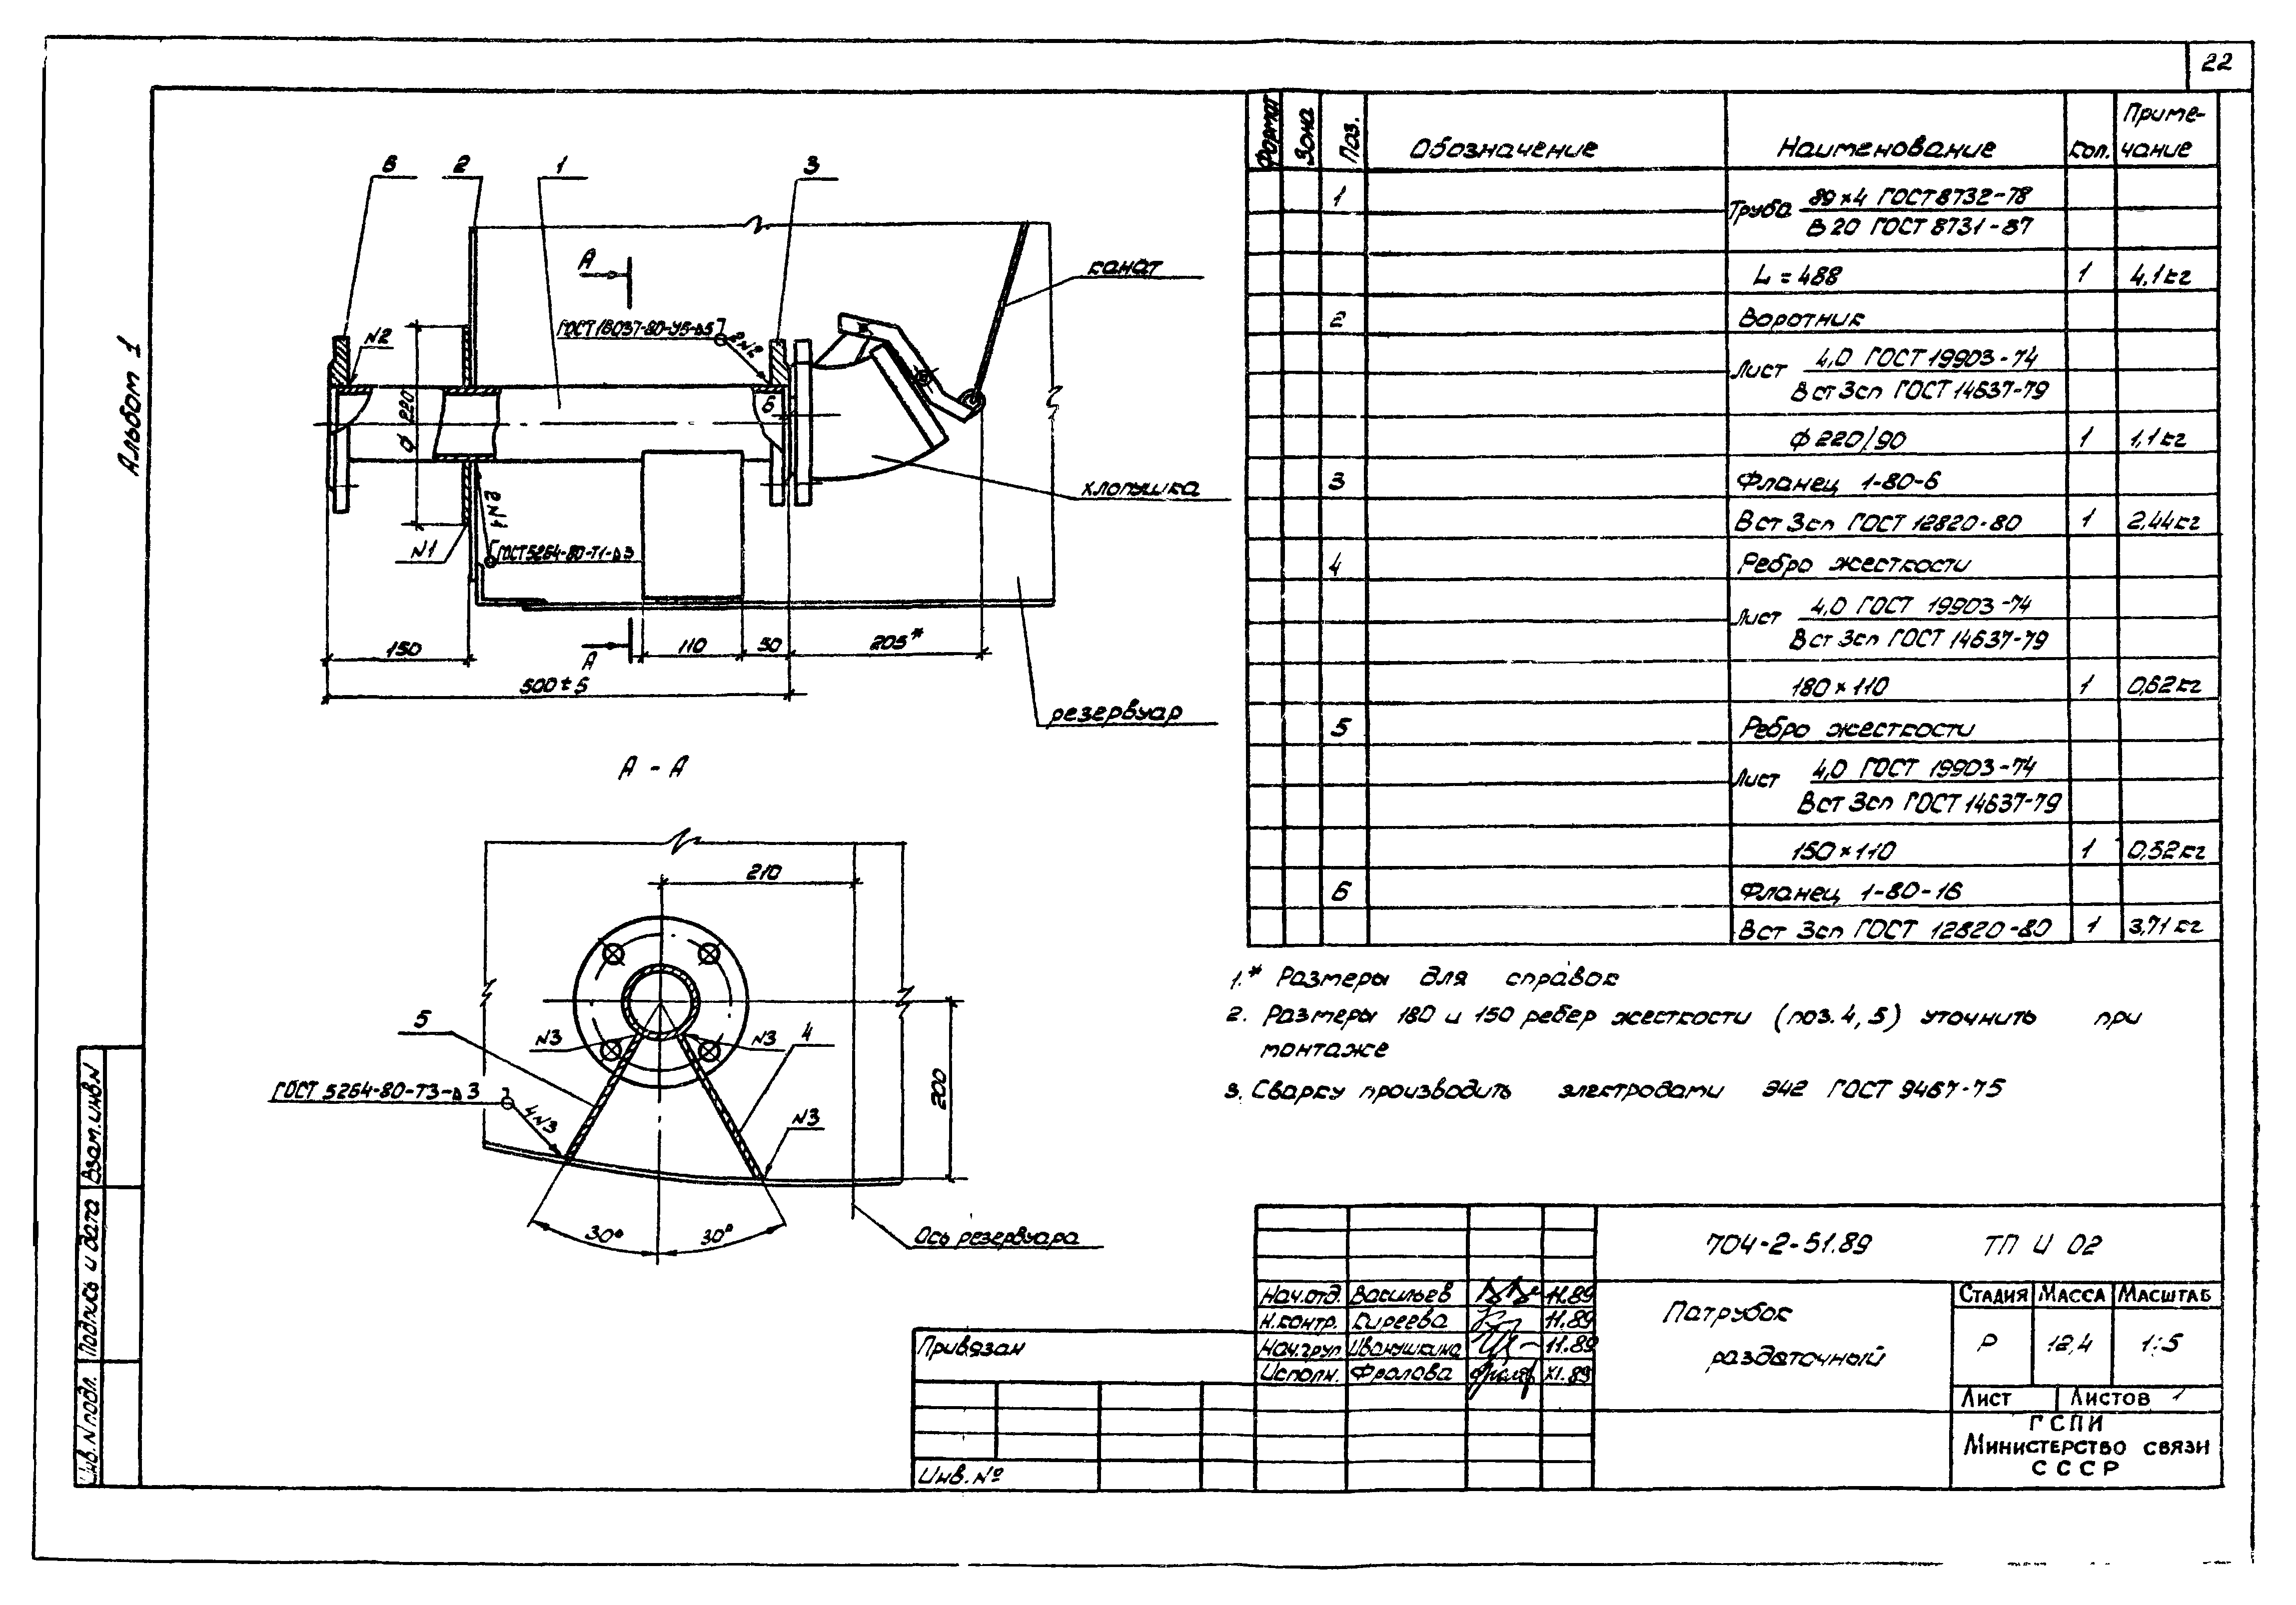 22
Альбом 1
6
2
1
3
А
канат
ГОСТ 16037-80-У5-⊿5
2N2
N2
6
ф 220
хлопушка
2N1
N1
ГОСТ 5264-80-Т1-⊿3
150
А
110
50
205*
500±5
резервуар
А - А
210
5
N3
N3
4
ГОСТ 5264-80-Т3-⊿3
4N3
N3
200
30°
30°
Ось резервуара
Формат Зона Поз. Обозначение Наименование Кол. Приме-
чание
1 Труба 89×4 ГОСТ 8732-78
В 20 ГОСТ 8731-87
L = 488 1 4,1кг
2 Воротник
Лист 4,0 ГОСТ 19903-74
Вст 3сп ГОСТ 14637-79
ф 220/90 1 1,1кг
3 Фланец 1-80-6
Вст 3сп ГОСТ 12820-80 1 2,44кг
4 Ребро жесткости
Лист 4,0 ГОСТ 19903-74
Вст 3сп ГОСТ 14637-79
180×110 1 0,62кг
5 Ребро жесткости
Лист 4,0 ГОСТ 19903-74
Вст 3сп ГОСТ 14637-79
150×110 1 0,52кг
6 Фланец 1-80-16
Вст 3сп ГОСТ 12820-80 1 3,71кг
1.* Размеры для справок
2. Размеры 180 и 150 ребер жесткости (поз. 4, 5) уточнить при
монтаже
3. Сварку производить электродами Э42 ГОСТ 9467-75
704-2-51.89 ТП И 02
Нач.отд. Васильев 11.89
Н.контр. Киреева 11.89
Нач.груп Иванушкина 11.89
Исполн. Фролова XI.89
Патрубок
раздаточный
Стадия Масса Масштаб
Р 12,4 1:5
Лист Листов 1
ГСПИ
Министерство связи
СССР
Привязан
Инв. №
Взам.инв.N
Подпись и дата
Инв. N подл.